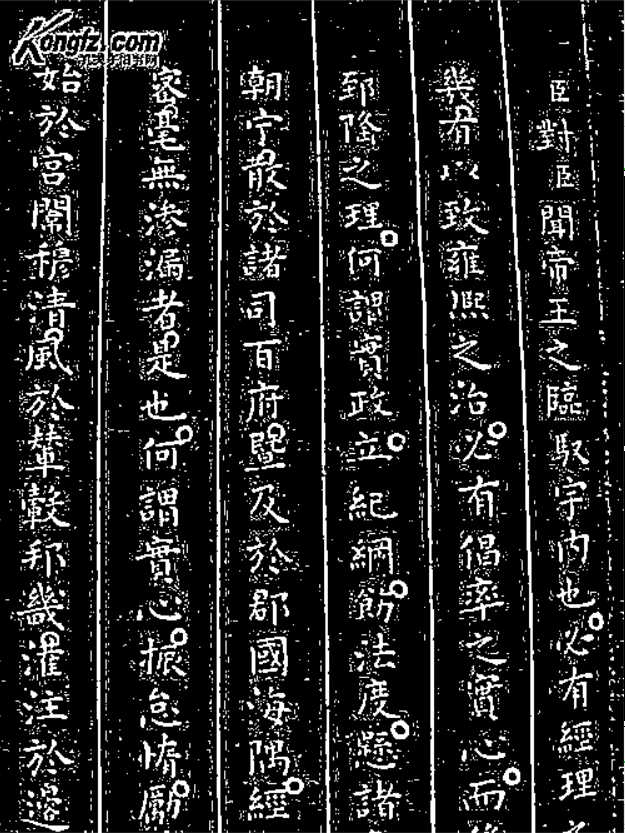 Kongfz.com
孔夫子旧书网
臣對臣聞帝王之臨馭宇内也必有經理
幾有以致雍熙之治必有倡率之實心而
郅隆之理何謂實政立紀綱飭法度懸諸
朝宁散於諸司百府暨及於郡國海隅經
密毫無滲漏者是也何謂實心振怠惰勵
始於宮闈穆清風於輦轂邦畿灌注於邊